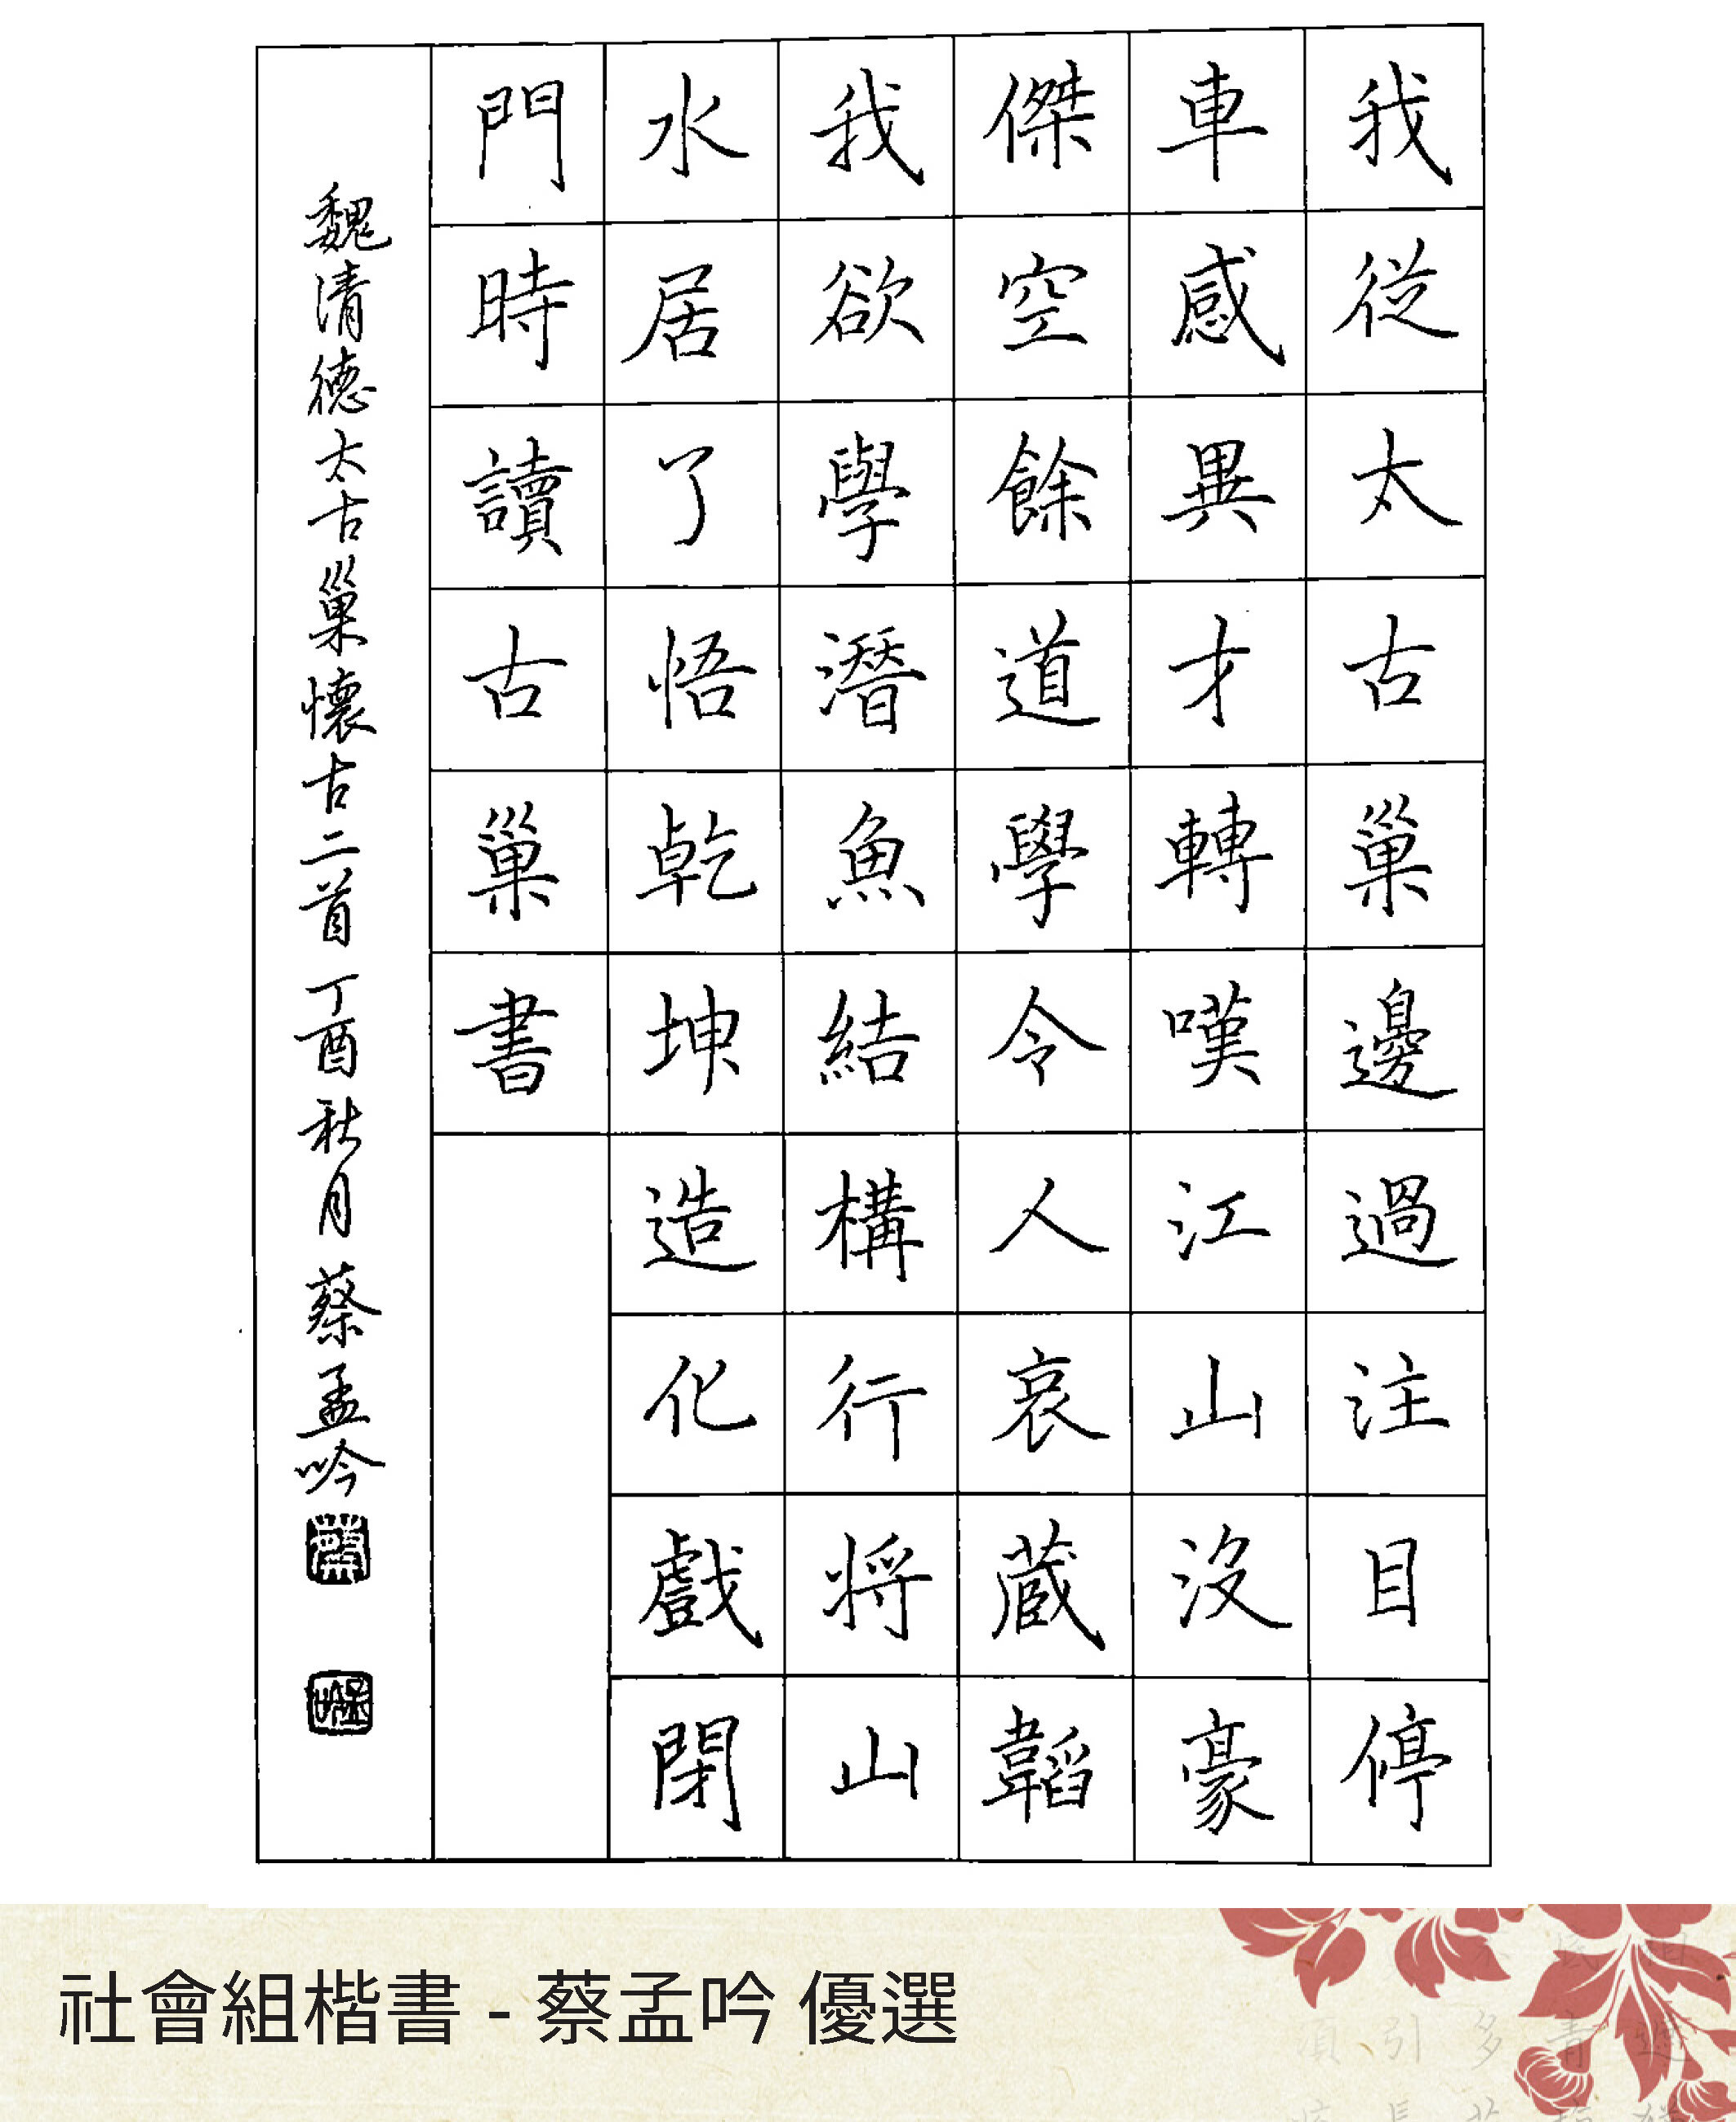 我從太古巢邊過注目停
車感異才轉嘆江山沒豪
傑空餘道學令人哀藏韜
我欲學潛魚結構行將山
水居了悟乾坤造化戲閉
門時讀古巢書
魏清德太古巢懷古二首 丁酉秋月 蔡孟吟
社會組楷書 - 蔡孟吟 優選